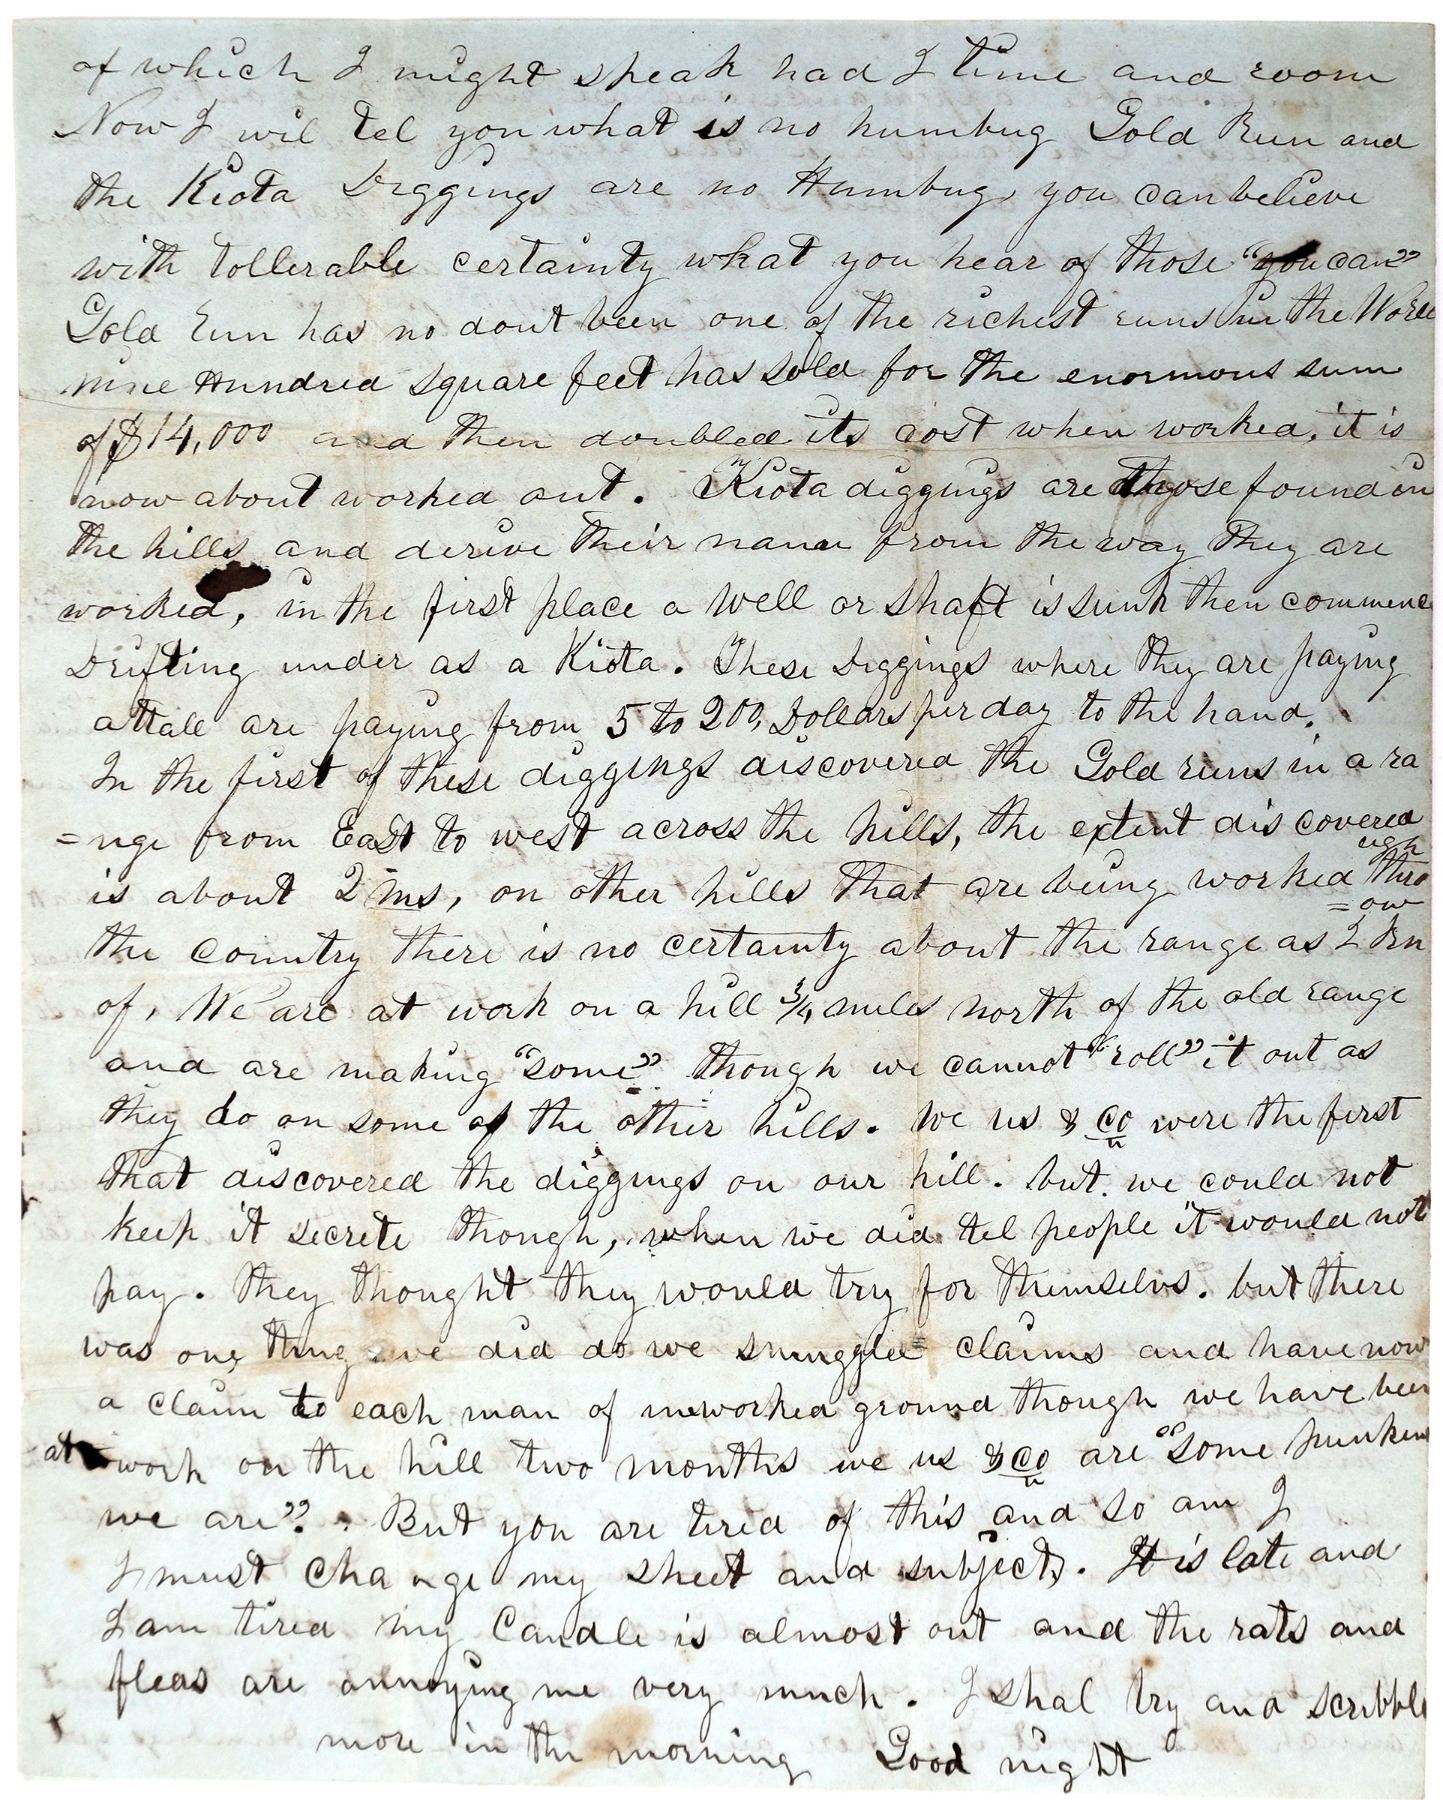 of which I might speak had I time and room
Now I wil tel you what is no humbug Gold Run and
the Kiota Diggings are no Humbug, you can believe
with tollerable certainty what you hear of those "you can"
Gold Run has no dout been one of the richest runs in the World
nine Hundred square feet has sold for the enormous sum
of $14,000 and then doubled its cost when worked, it is
now about worked out. Kiota diggings are those found in
the hills and derive their name from the way they are
worked, in the first place a well or shaft is sunk then commence
Drifting under as a Kiota. These Diggings where they are paying
attall are paying from 5 to 200, Dollars per day to the hand.
In the first of these diggings discovered the Gold runs in a ra
=nge from East to west across the hills, the extent discovered
is about 2 ms, on other hills that are being worked through
the country there is no certainty about the range as I know
of, We are at work on a hill 3/4 miles north of the old range
and are making "some" though we cannot "roll" it out as
they do on some of the other hills. We us & Co were the first
that discovered the diggings on our hill. but we could not
keep it secrete though, when we did tel people it would not
pay. they thought they would try for themselvs. but there
was one thing we did do we smuggled claims and have now
a claim to each man of unworked ground though we have been
at work on the hill two months we us & Co are "some punkins
we are". But you are tired of this and so am I
I must change my sheet and subject. It is late and
I am tired my Candle is almost out and the rats and
fleas are annoying me very much. I shal try and scribble
more in the morning Good night